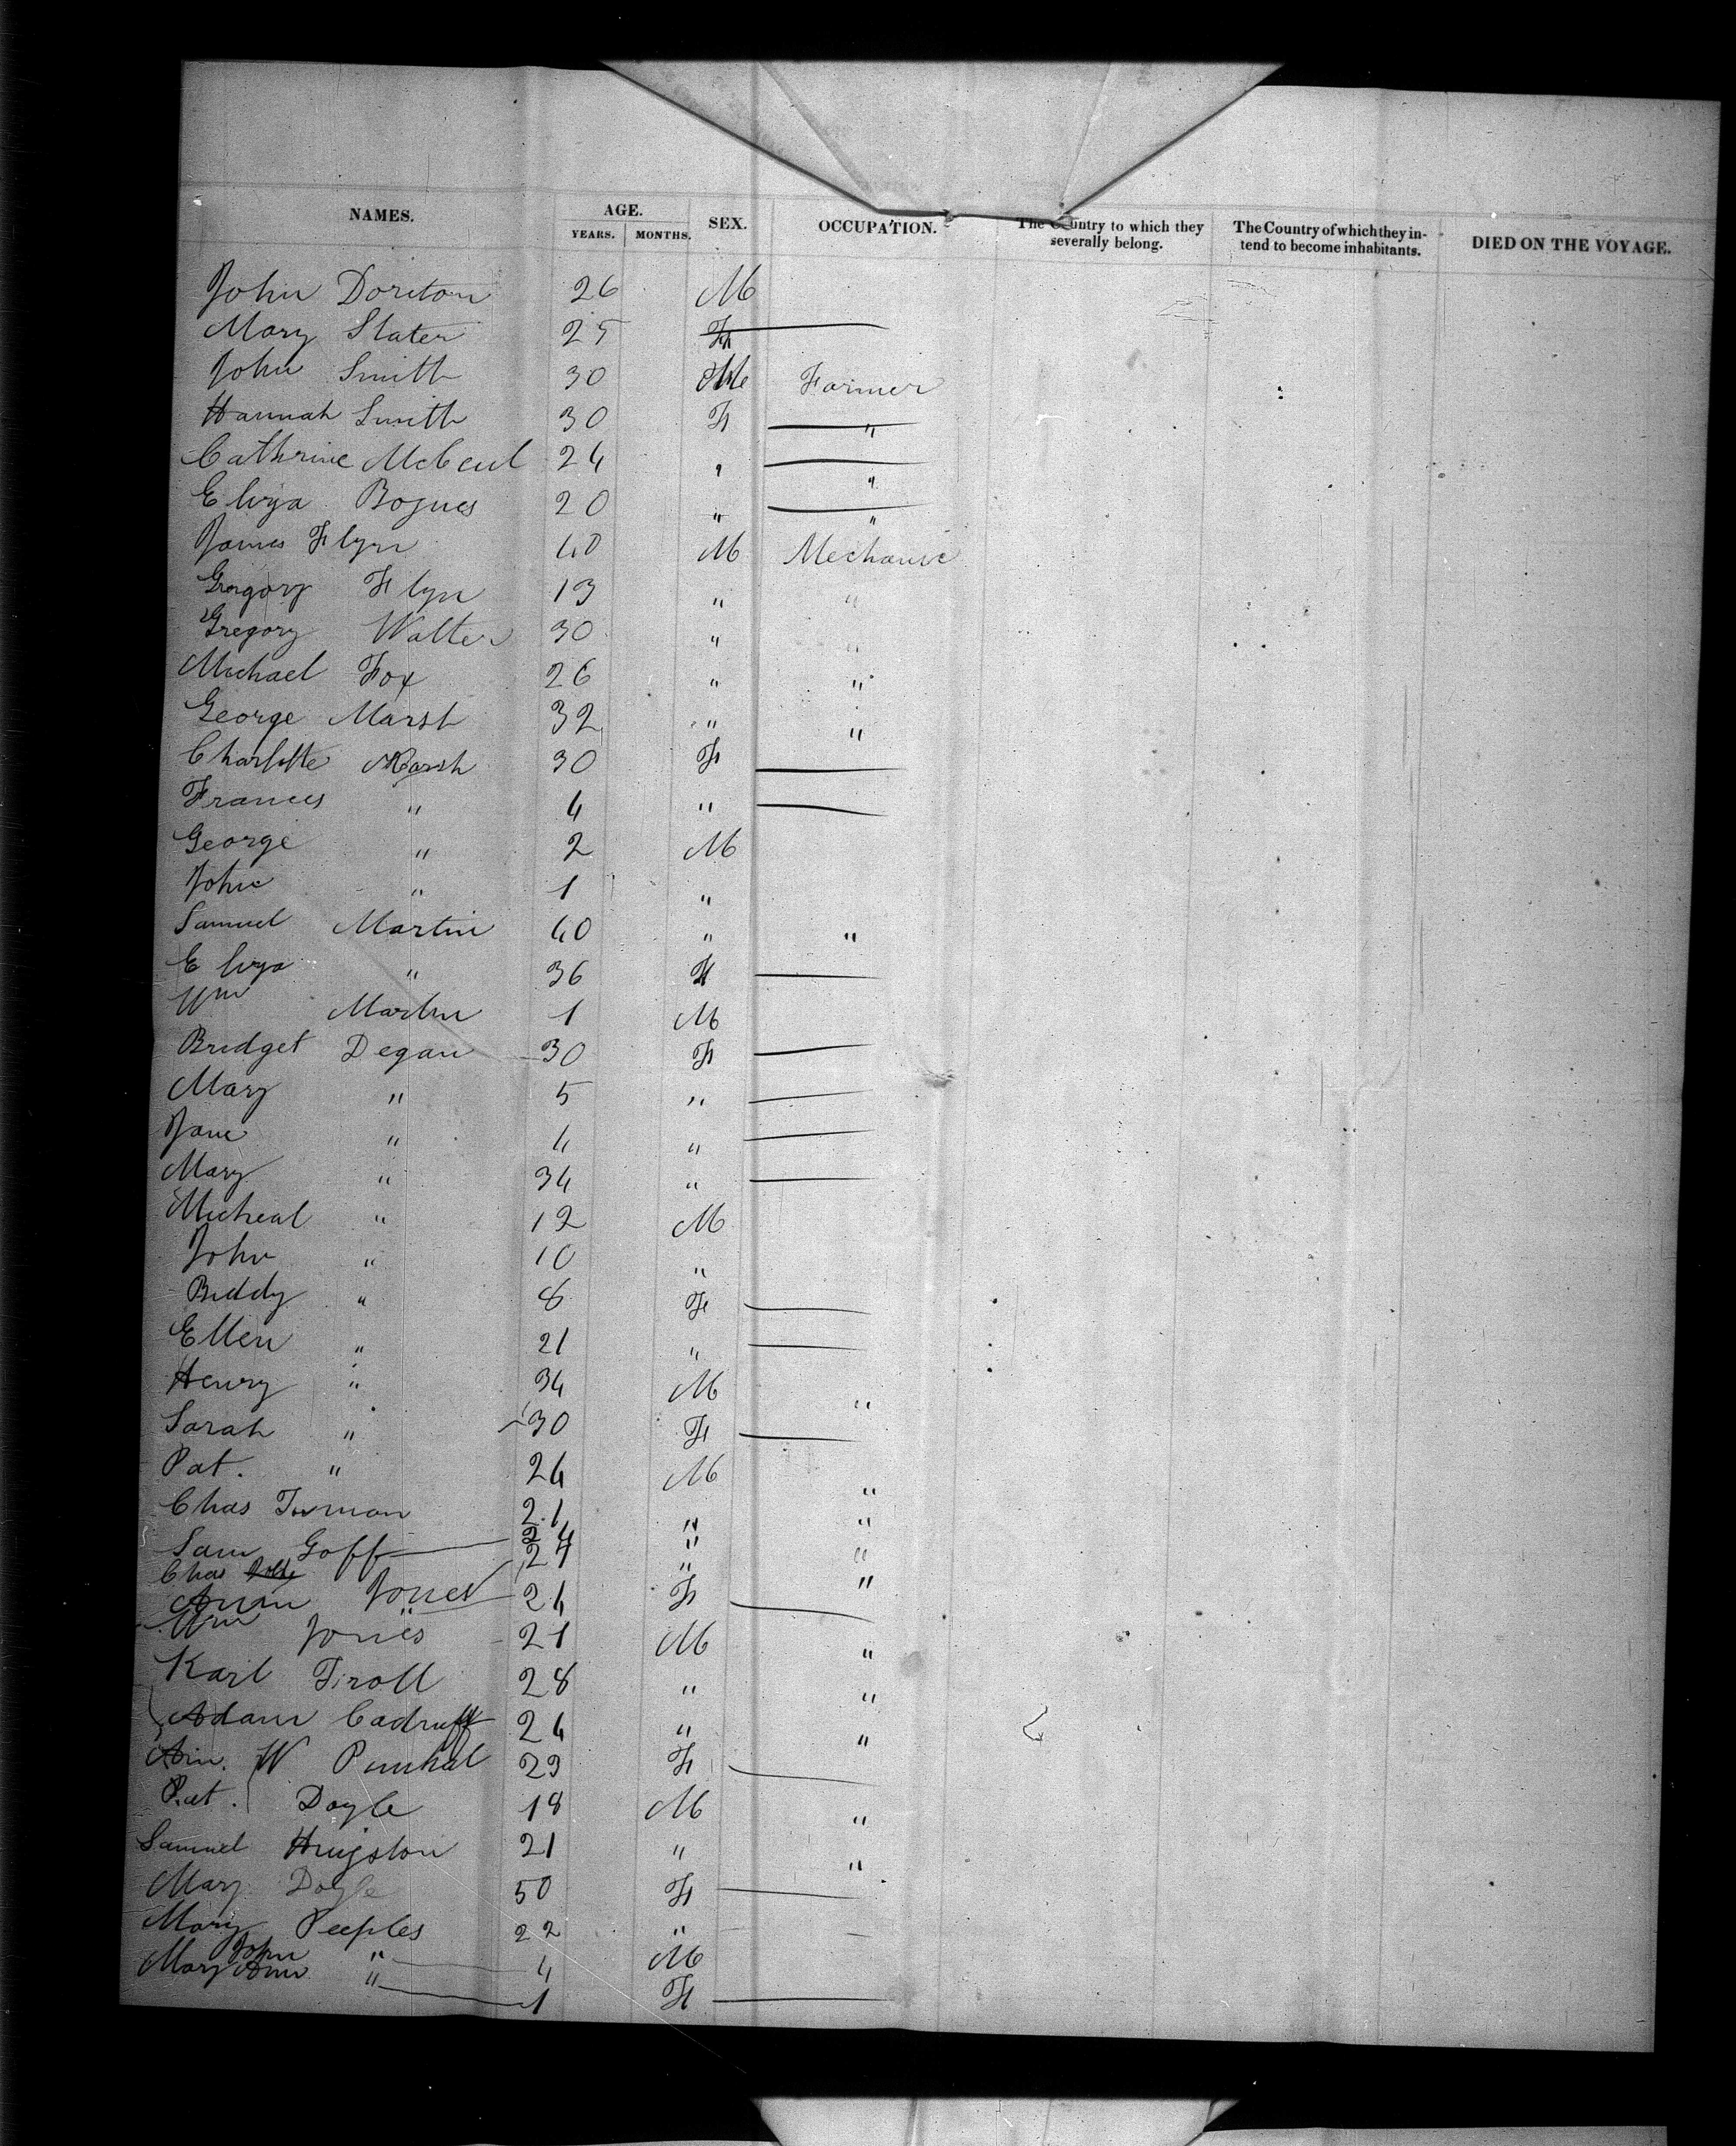 NAMES. AGE. SEX. OCCUPATION. The Country to which they severally belong. The Country of which they in- tend to become inhabitants. DIED ON THE VOYAGE.
YEARS. MONTHS.
John Doreton 26 M
Mary Slater 25 F
John Smith 30 M Farmer
Hannah Smith 30 F — "
Cathrine 24 " — "
Eliza Bogues 20 " — "
James Flyn 40 M Mechanic
Gregory Flyn 13 " "
Gregory Walter 30 " "
Michael Fox 26 " "
George Marsh 32 " "
Charlotte Marsh 30 F —
Frances " 4 " —
George " 2 M
John " 1 "
Samuel Martin 40 " "
Eliza " 36 F —
Wm Martin 1 M
Bridget Degan 30 F —
Mary " 5 " —
Jane " 4 " —
Mary " 34 " —
Micheal " 12 M
John " 10 "
Biddy " 8 F —
Ellen " 21 " —
Henry " 34 M "
Sarah " 30 F —
Pat. " 24 M "
Chas 21 " "
Sam Goff 24 " "
Chas Jones 27 " "
Ann " 24 F —
Wm Jones 21 M "
Karl Tiroll 28 " "
Adam Cadruff 24 " "
W 29 F —
Pat. Doyle 18 M "
Samuel Hingston 21 " "
Mary Doyle 50 F —
Mary Peeples 22 " —
John " 4 M
Mary Ann " 1 F —